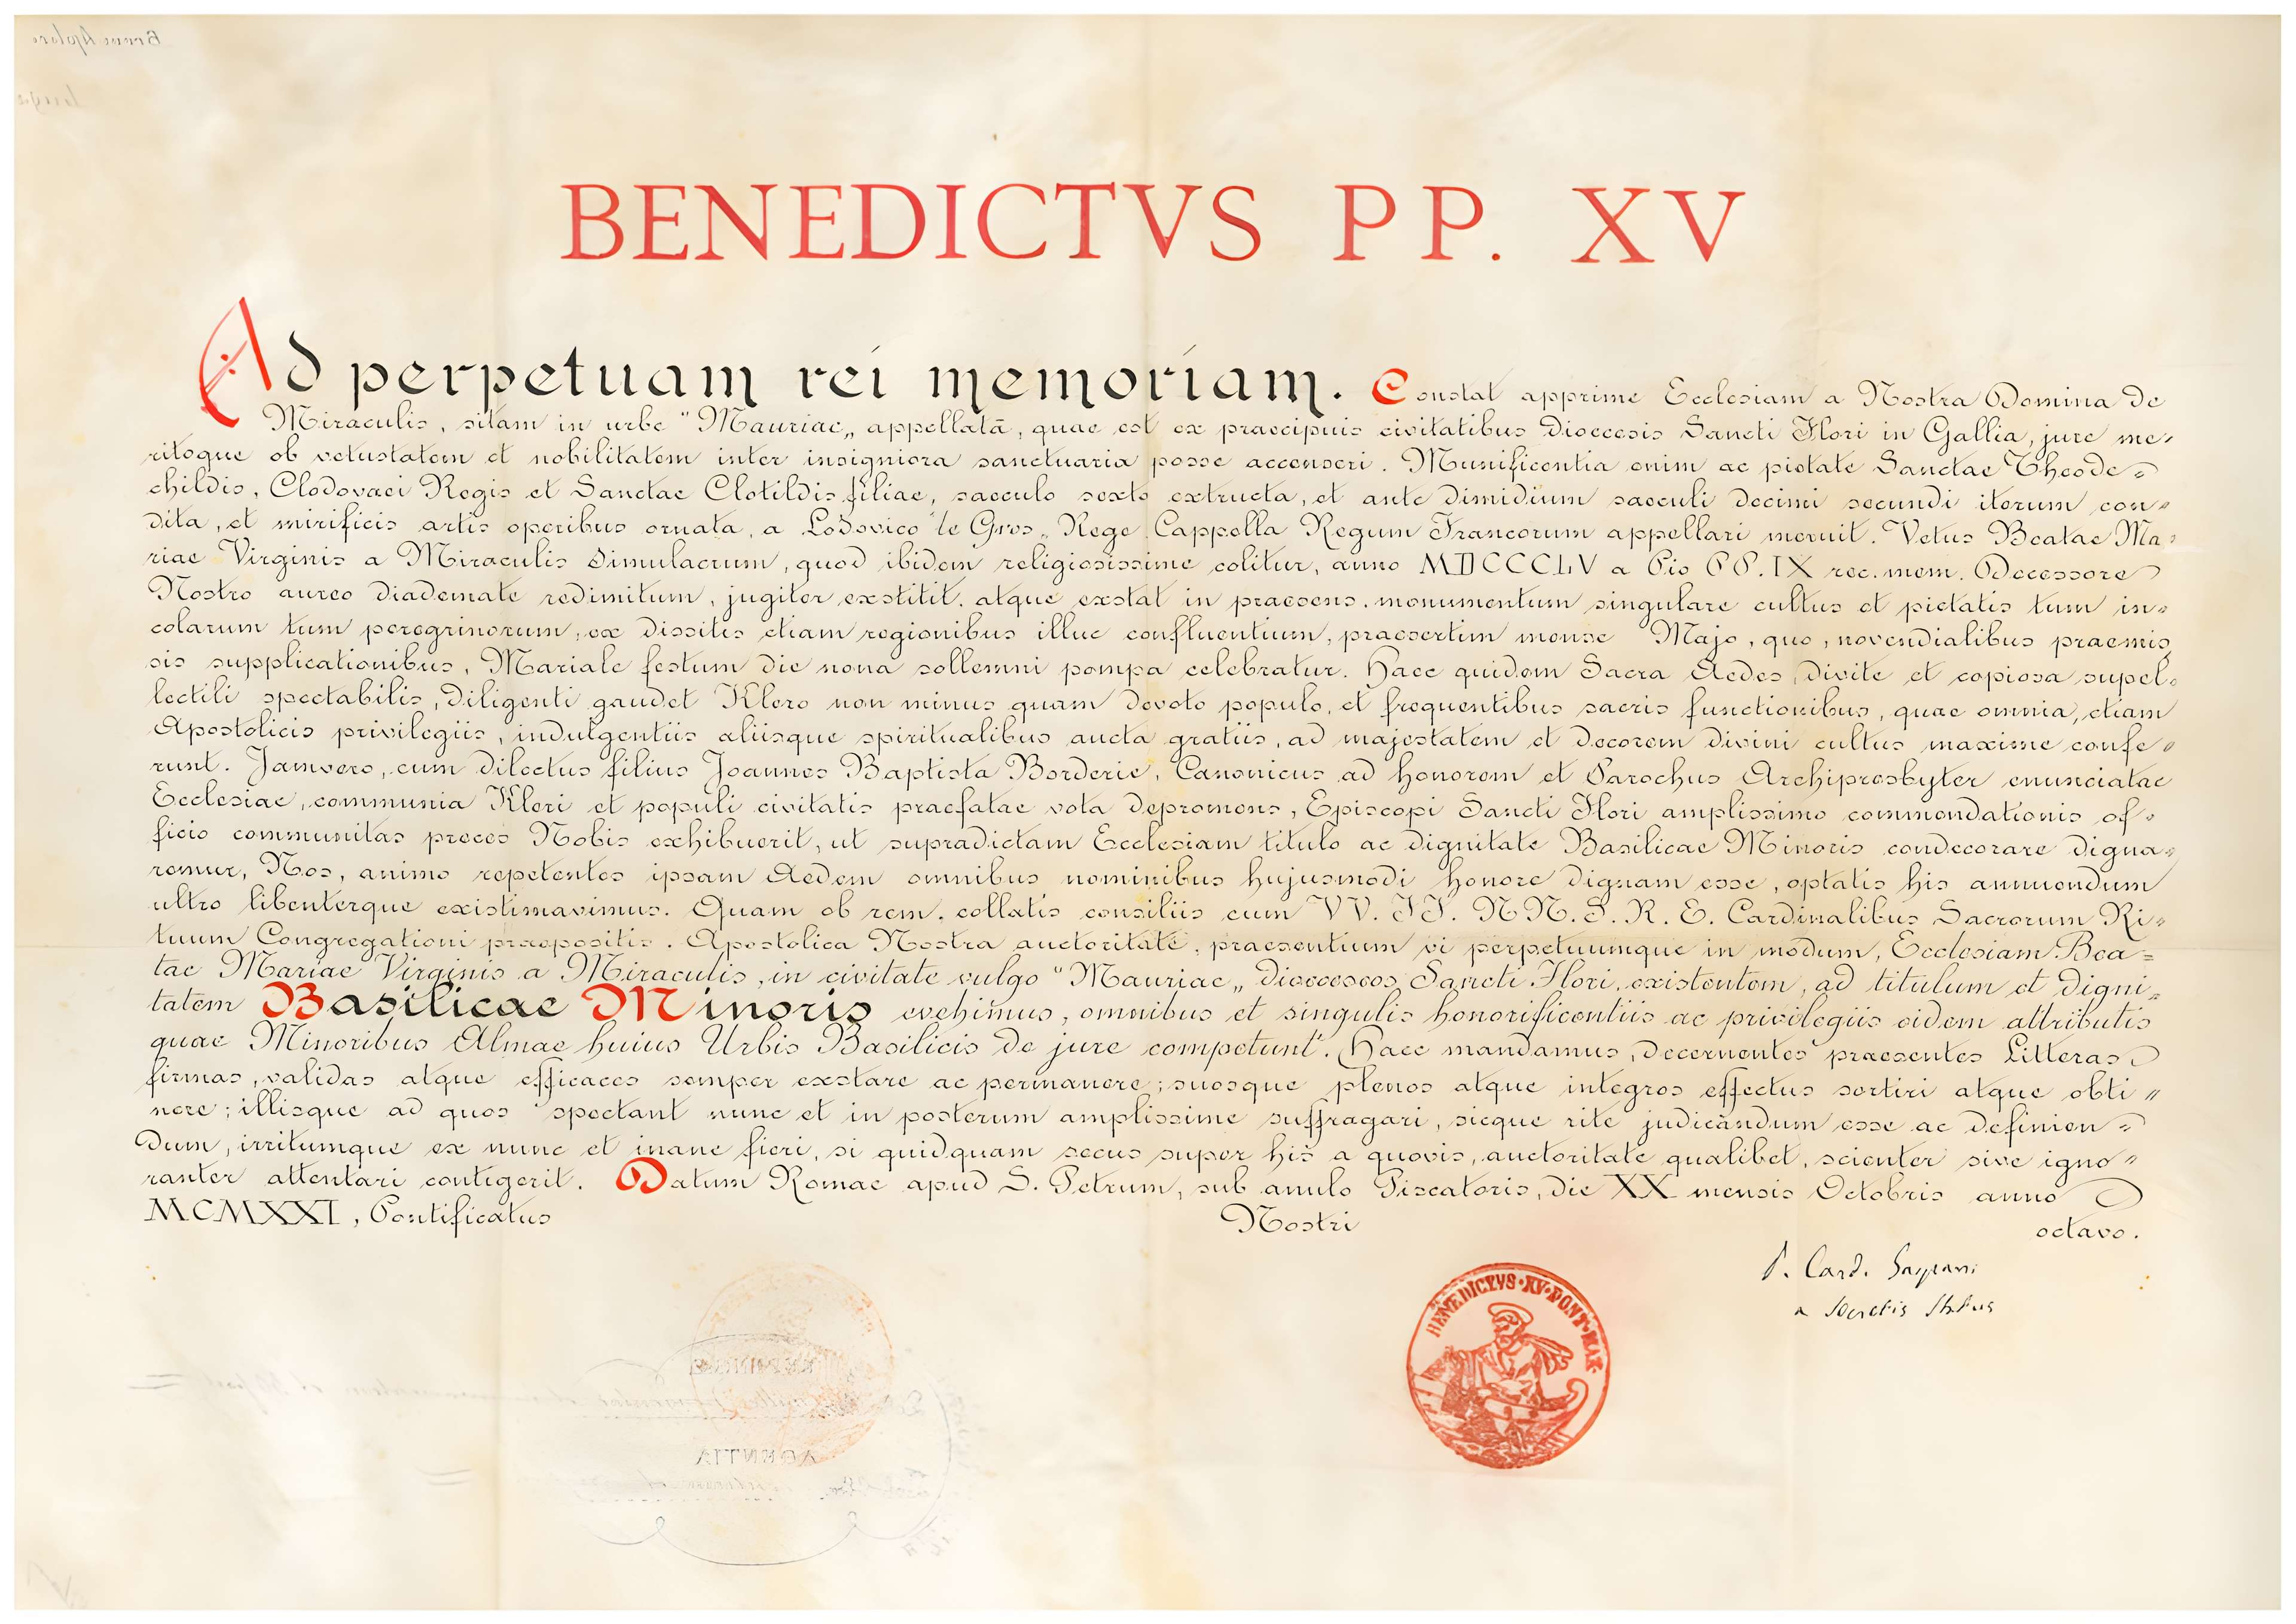 BENEDICTVS PP. XV
Ad perpetuam rei memoriam. Constat apprime Ecclesiam a Nostra Domina de
Miraculis, sitam in urbe "Mauriac„ appellatā, quae est ex praecipuis civitatibus Dioecesis Sancti Flori in Gallia, jure me-
ritoque ob vetustatem et nobilitatem inter insigniora sanctuaria posse accenseri. Munificentia enim ac pietate Sanctae Theode=
childis, Clodovaei Regis et Sanctae Clotildis filiae, saeculo sexto extructa, et ante dimidium saeculi decimi secundi iterum con=
dita, et mirificis artis operibus ornata, a Lodovico "le Gros„ Rege Cappella Regum Francorum appellari meruit. Vetus Beatae Ma=
riae Virginis a Miraculis Simulacrum, quod ibidem religiosissime colitur, anno MDCCCLV a Pio PP. IX rec. mem. Decessore
Nostro aureo diademate redimitum, jugiter exstitit, atque exstat in praesens, monumentum singulare cultus et pietatis tum in=
colarum tum peregrinorum, ex dissitis etiam regionibus illuc confluentium, praesertim mense Majo, quo, novendialibus praemis
sis supplicationibus, Mariale festum die nona sollemni pompa celebratur. Haec quidem Sacra Aedes, divite et copiosa supel=
lectili spectabilis, diligenti gaudet Klero non minus quam devoto populo, et frequentibus sacris functionibus, quae omnia, etiam
Apostolicis privilegiis, indulgentiis aliisque spiritualibus aucta gratiis, ad majestatem et decorem divini cultus maxime confe=
runt. Jamvero, cum dilectus filius Joannes Baptista Borderie, Canonicus ad honorem et Parochus Archipresbyter enunciatae
Ecclesiae, communia Kleri et populi civitatis praefatae vota depromens, Episcopi Sancti Flori amplissimo commendationis of=
ficio communitas preces Nobis exhibuerit, ut supradictam Ecclesiam titulo ac dignitate Basilicae Minoris condecorare digna=
remur, Nos, animo repetentes ipsam Aedem omnibus nominibus hujusmodi honore dignam esse, optatis his annuendum
ultro libenterque existimavimus. Quam ob rem, collatis consiliis cum VV. FF. NN. S. R. E. Cardinalibus Sacrorum Ri=
tuum Congregationi praepositis, Apostolica Nostra auctoritate, praesentium vi perpetuumque in modum, Ecclesiam Bea=
tae Mariae Virginis a Miraculis, in civitate vulgo "Mauriac„ dioeceseos Sancti Flori, existentem, ad titulum et digni=
tatem Basilicae Minoris evehimus, omnibus et singulis honorificentiis ac privilegiis eidem attributis
quae Minoribus Almae huius Urbis Basilicis de jure competunt. Haec mandamus, decernentes praesentes Litteras
firmas, validas atque efficaces semper exstare ac permanere; suosque plenos atque integros effectus sortiri atque obti=
nere; illisque ad quos spectant nunc et in posterum amplissime suffragari, sicque rite judicandum esse ac definien=
dum, irritumque ex nunc et inane fieri, si quidquam secus super his a quovis, auctoritate qualibet, scienter sive igno=
ranter attentari contigerit. Datum Romae apud S. Petrum, sub anulo Piscatoris, die XX mensis Octobris anno
MCMXXI, Pontificatus Nostri octavo.
P. Card. Gasparri
a Secretis Status
BENEDICTVS·XV·PONT·MAX
AGENTIA